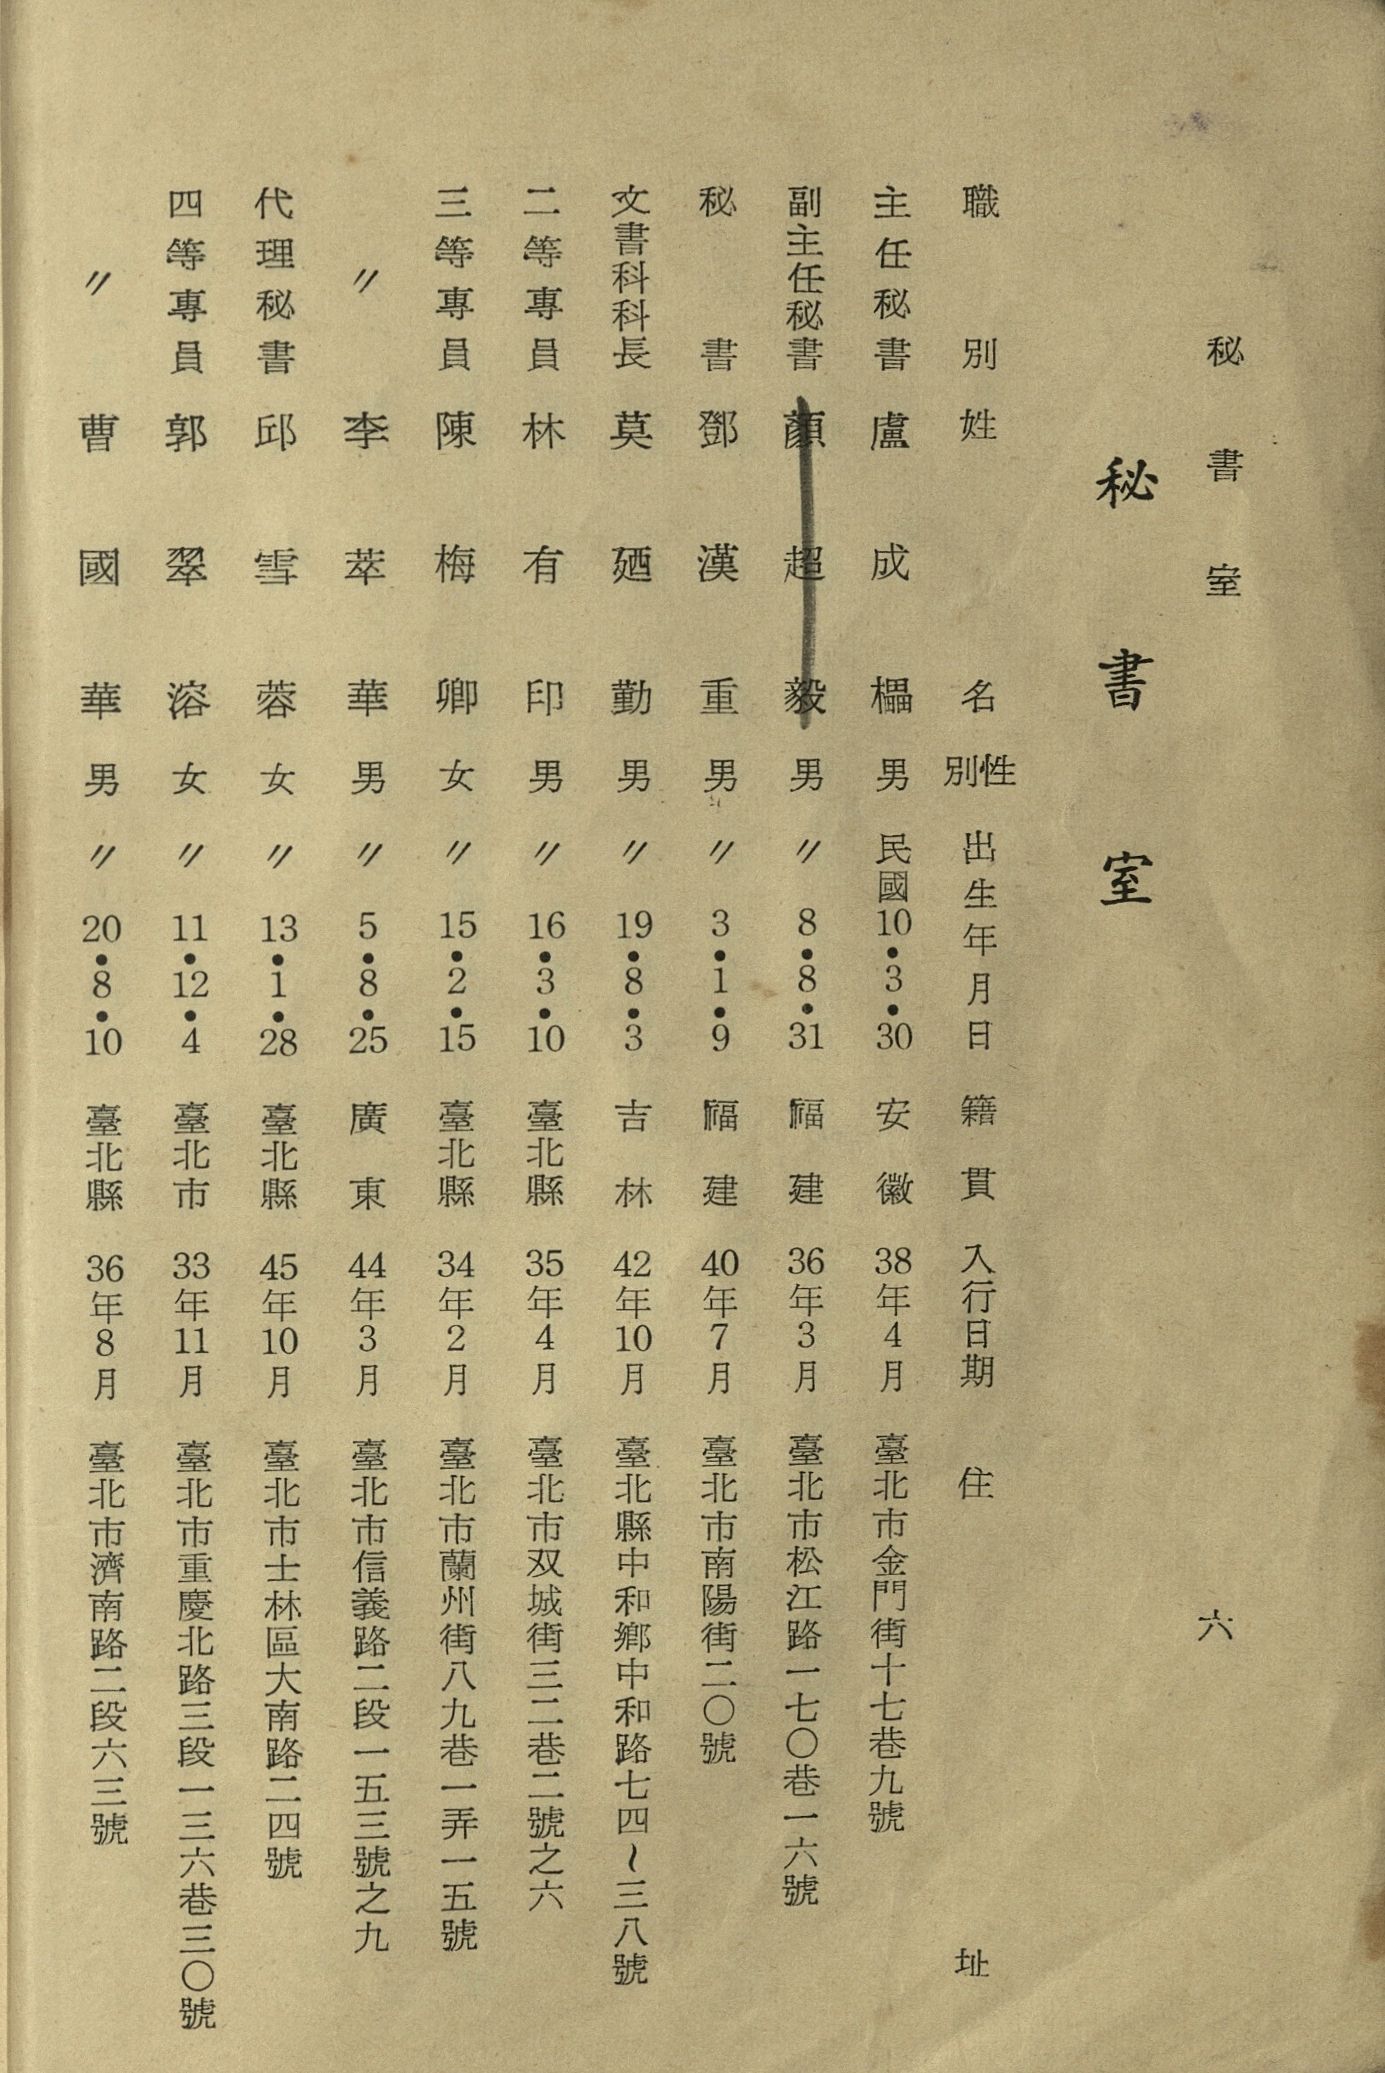 秘書室
六
秘書室
職別 姓名 性別 出生年月日 籍貫 入行日期 住址
主任秘書 盧成橸 男 民國10•3•30 安徽 38年4月 臺北市金門街十七巷九號
副主任秘書 顏超毅 男 〃8•8•31 福建 36年3月 臺北市松江路一七〇巷一六號
秘書 鄧漢重 男 〃3•1•9 福建 40年7月 臺北市南陽街二〇號
文書科科長 莫廼勤 男 〃19•8•3 吉林 42年10月 臺北縣中和鄉中和路七四~三八號
二等專員 林有印 男 〃16•3•10 臺北縣 35年4月 臺北市双城街三二巷二號之六
三等專員 陳梅卿 女 〃15•2•15 臺北縣 34年2月 臺北市蘭州街八九巷一弄一五號
〃 李萃華 男 〃5•8•25 廣東 44年3月 臺北市信義路二段一五三號之九
代理秘書 邱雪蓉 女 〃13•1•28 臺北縣 45年10月 臺北市士林區大南路二四號
四等專員 郭翠溶 女 〃11•12•4 臺北市 33年11月 臺北市重慶北路三段一三六巷三〇號
〃 曹國華 男 〃20•8•10 臺北縣 36年8月 臺北市濟南路二段六三號